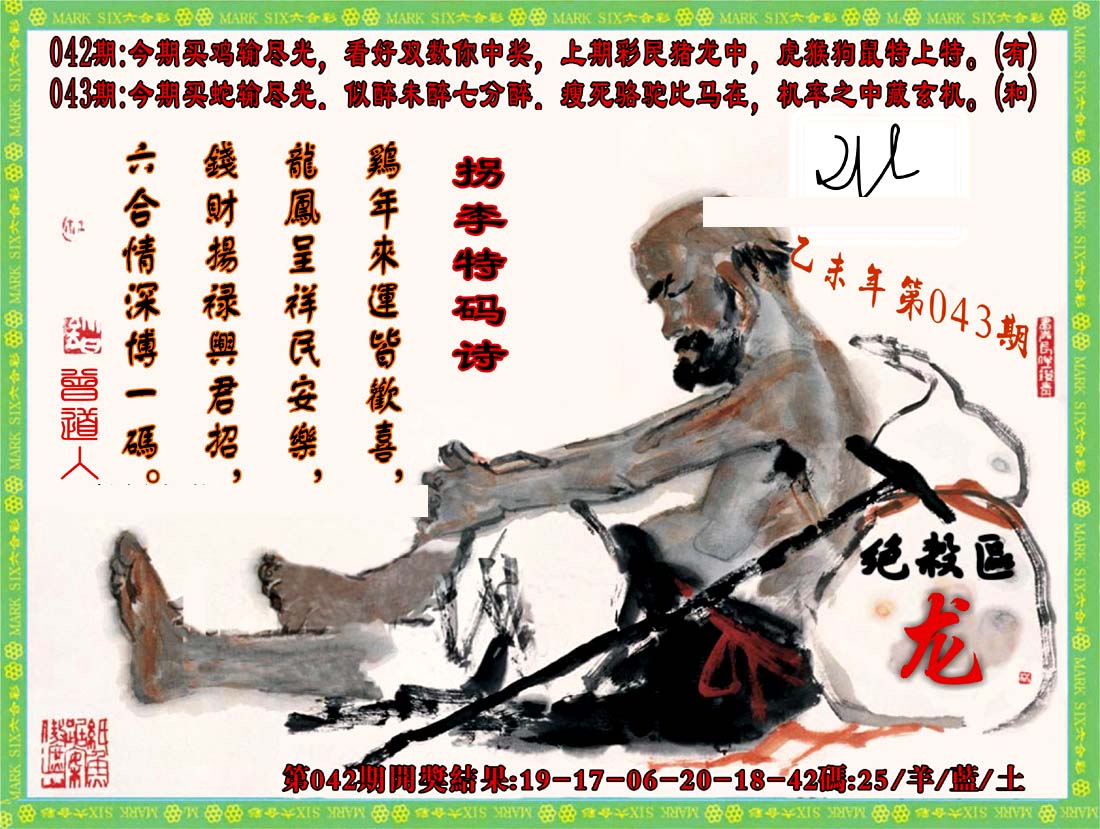 MARK SIX六合彩
042期:今期买鸡输尽光，看好双数你中奖，上期彩民猪龙中，虎猴狗鼠特上特。(有)
043期:今期买蛇输尽光．似醉未醉七分醉．瘦死骆驼比马在，机率之中藏玄机。(和)
拐李特码诗
鷄年來運皆歡喜，
龍鳳呈祥民安樂，
錢財揚禄興君招，
六合情深博一碼。
曾道人
乙未年第043期
绝殺區
龙
第042期開獎結果:19-17-06-20-18-42碼:25/羊/藍/土